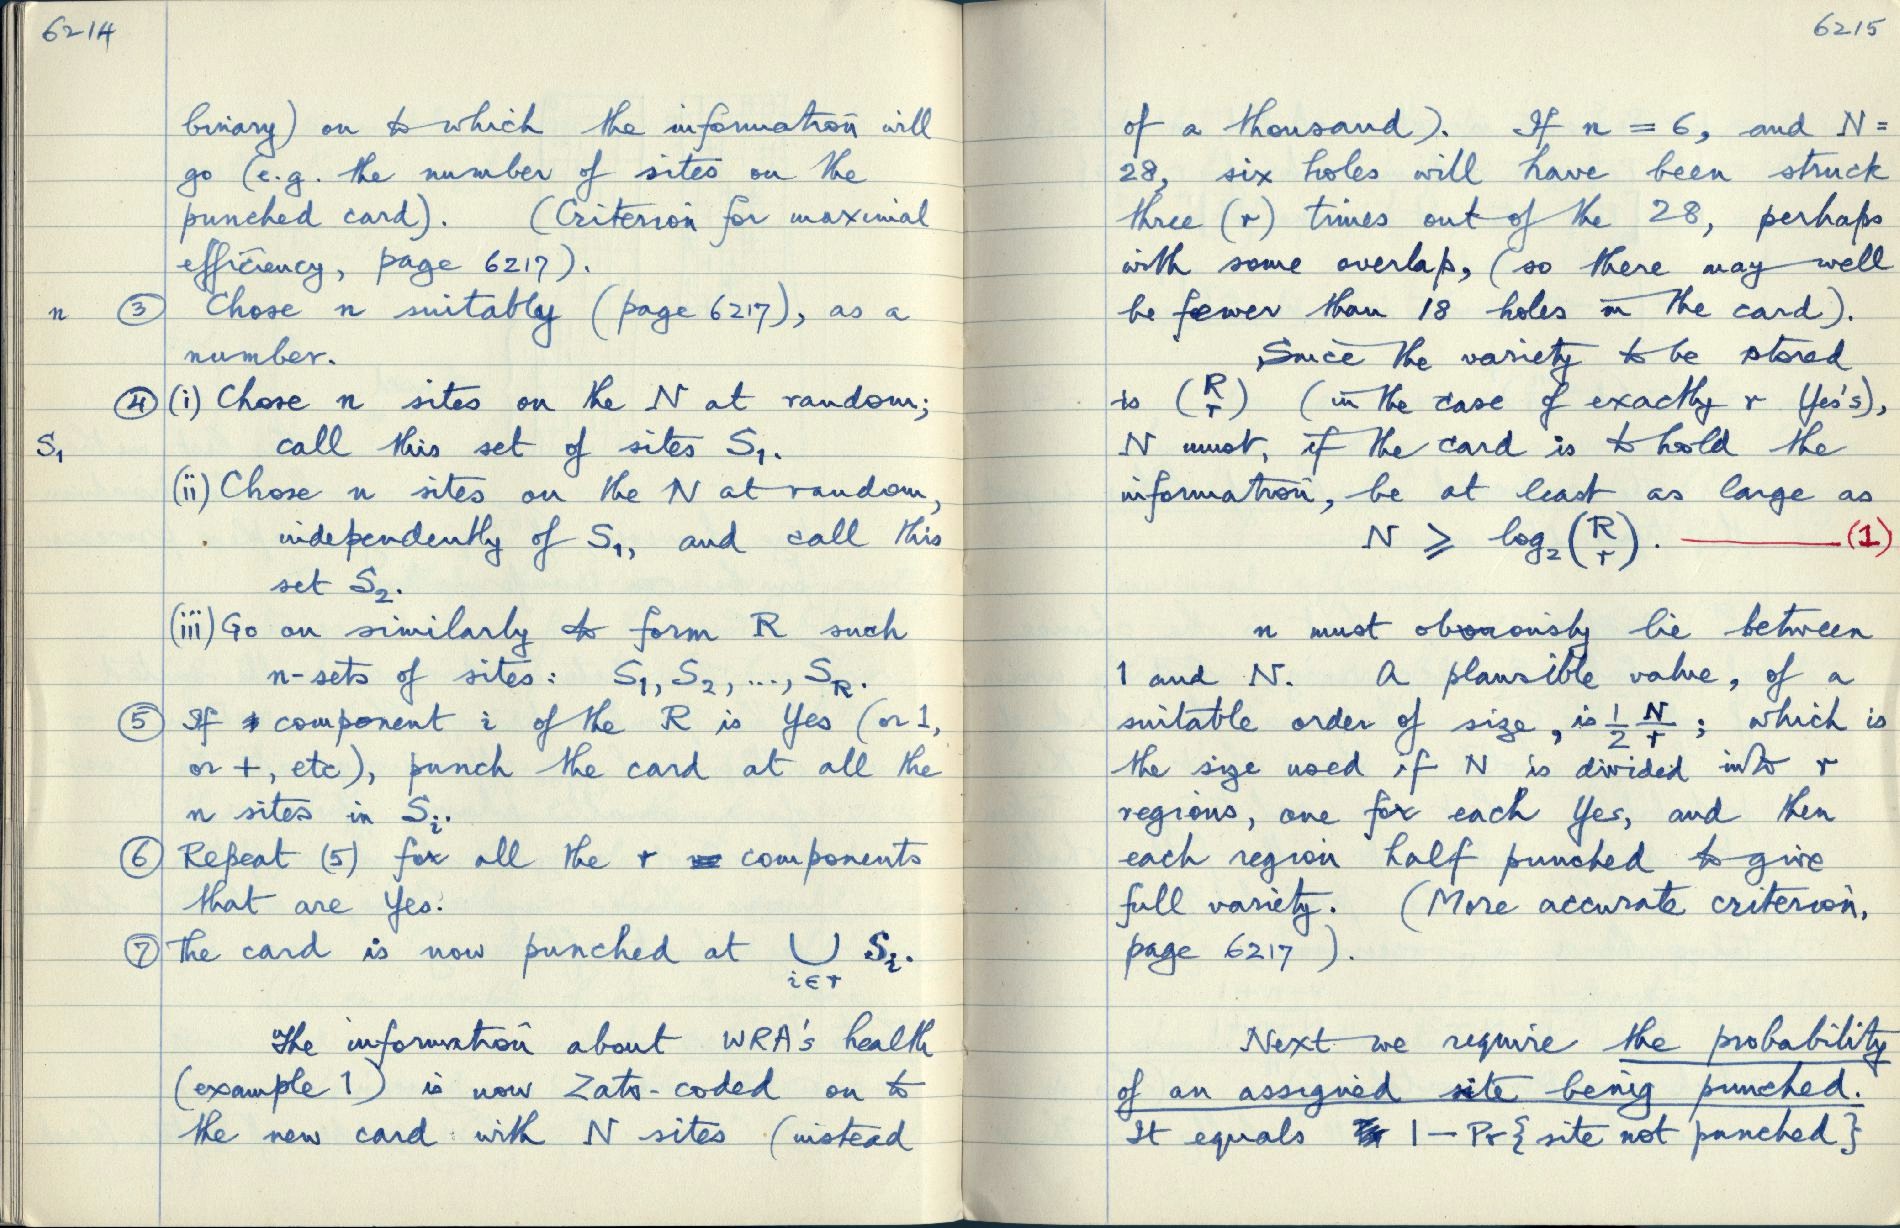 6214
binary) on to which the information will
go (e.g. the number of sites on the
punched card). (Criterion for maximal
efficiency, page 6217).
n ③ Chose n suitably (page 6217), as a
number.
④ (i) Chose n sites on the N at random;
S₁ call this set of sites S₁.
(ii) Chose n sites on the N at random,
independently of S₁, and call this
set S₂.
(iii) Go on similarly to form R such
n-sets of sites: S₁, S₂, ..., S_R.
⑤ If component i of the R is Yes (or 1,
or +, etc), punch the card at all the
n sites in Sᵢ.
⑥ Repeat (5) for all the r components
that are Yes.
⑦ The card is now punched at ⋃ Sᵢ.
i∈r
The information about WRA's health
(example 1) is now Zato-coded on to
the new card with N sites (instead
6215
of a thousand). If n = 6, and N =
28, six holes will have been struck
three (r) times out of the 28, perhaps
with some overlap, (so there may well
be fewer than 18 holes in the card).
Since the variety to be stored
is (R r) (in the case of exactly r Yes's),
N must, if the card is to hold the
information, be at least as large as
N ⩾ log₂ (R r). (1)
n must obviously lie between
1 and N. A plausible value, of a
suitable order of size, is 1/2 N/r ; which is
the size used if N is divided into r
regions, one for each Yes, and then
each region half punched to give
full variety. (More accurate criterion,
page 6217).
Next we require the probability
of an assigned site being punched.
It equals 1 − Pr{site not punched}